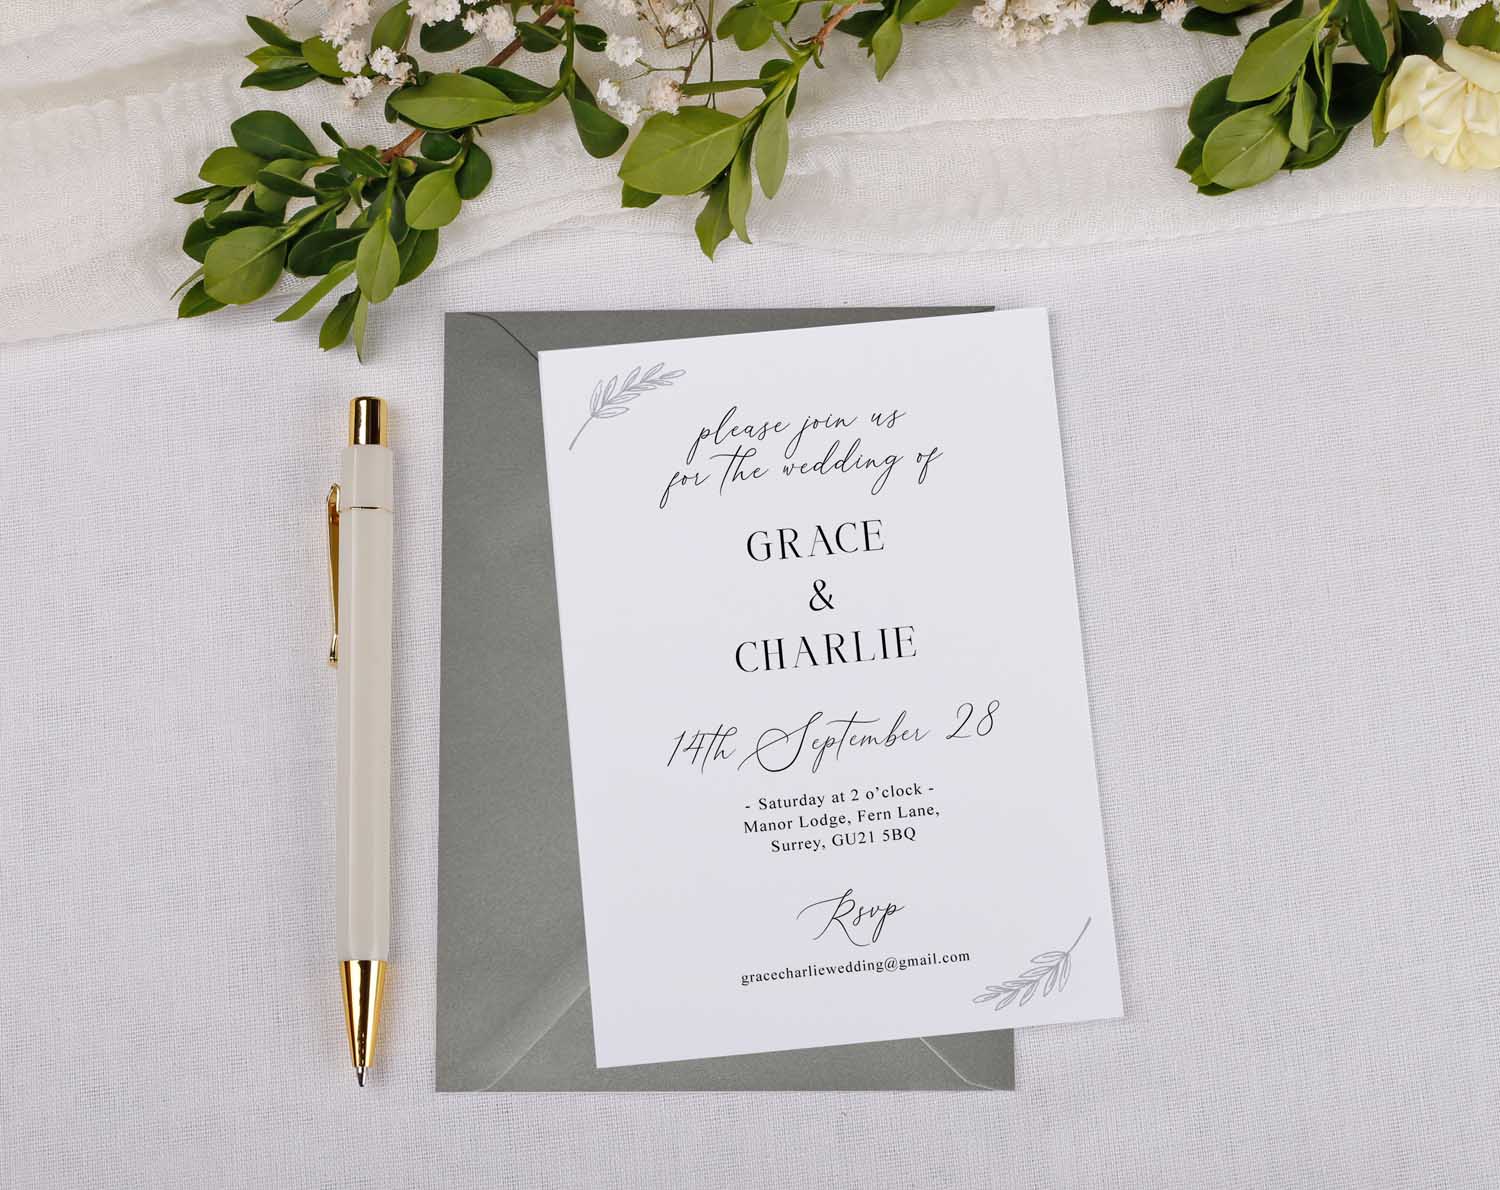 please join us
for the wedding of
GRACE
&
CHARLIE
14th September 28
- Saturday at 2 o’clock -
Manor Lodge, Fern Lane,
Surrey, GU21 5BQ
Rsvp
gracecharliewedding@gmail.com